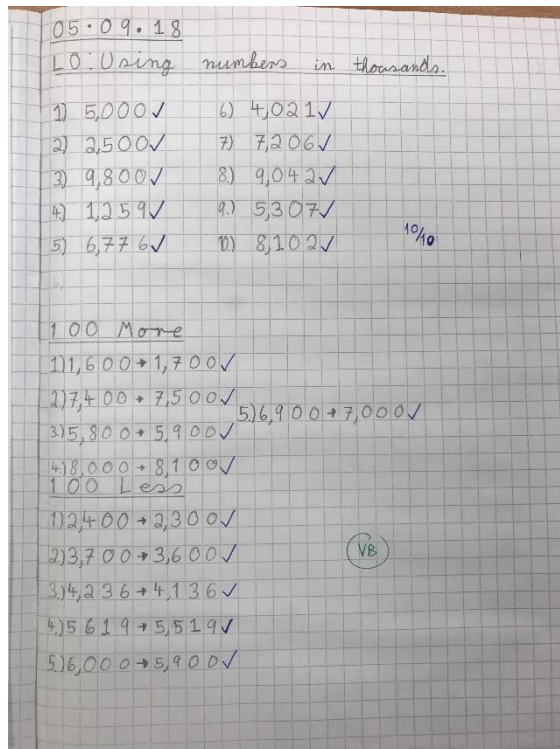 05.09.18
LO: Using numbers in thousands.
1) 5,000 ✓
2) 2,500 ✓
3) 9,800 ✓
4.) 1,259 ✓
5) 6,776 ✓
6) 4,021 ✓
7) 7,206 ✓
8.) 9,042 ✓
9.) 5,307 ✓
10.) 8,102 ✓
10/10
100 More
1) 1,600 → 1,700 ✓
2) 7,400 → 7,500 ✓
3.) 5,800 → 5,900 ✓
4.) 8,000 → 8,100 ✓
5.) 6,900 → 7,000 ✓
100 Less
1) 2,400 → 2,300 ✓
2) 3,700 → 3,600 ✓
3.) 4,236 → 4,136 ✓
4.) 5619 → 5,519 ✓
5.) 6,000 → 5,900 ✓
VB